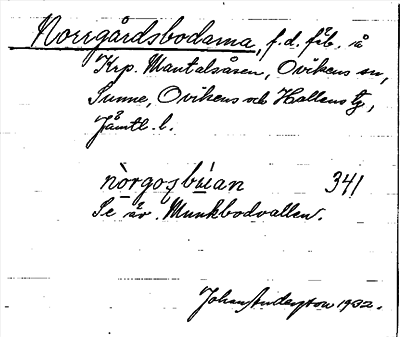 Norrgårdsbodarna, f.d. fäb. å
Krp. Mantalsåsen, Ovikens sn,
Sunne, Ovikens och Hallens tg,
Jämtl. l.
nòrgosbúan 341
Se äv. Munkbodvallen.
Johan Anderzon 1932.